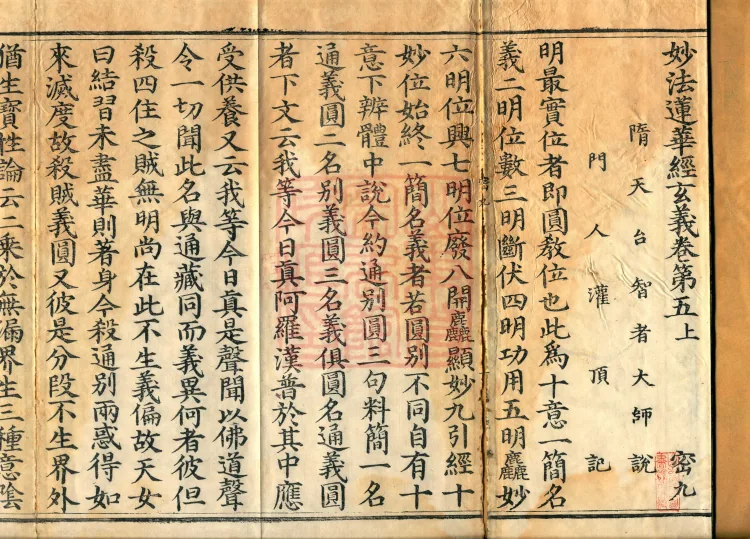 妙法蓮華經玄義卷第五上 密九
隋天台智者大師說
門人灌頂記
明最實位者即圓教位也此為十意一簡名
義二明位數三明斷伏四明功用五明麤妙
六明位興七明位廢八開麤顯妙九引經十
妙位始終一簡名義者若圓別不同自有十
意下辨體中說今約通別圓三句料簡一名
通義圓二名別義圓三名義俱圓名通義圓
者下文云我等今日真阿羅漢普於其中應
受供養又云我等今日真是聲聞以佛道聲
令一切聞此名與通藏同而義異何者彼但
殺四住之賊無明尚在此不生義偏故天女
曰結習未盡華則著身今殺通別兩惑得如
來滅度故殺賊義圓又彼是分段不生界外
猶生寶性論云二乘於無漏界生三種意陰